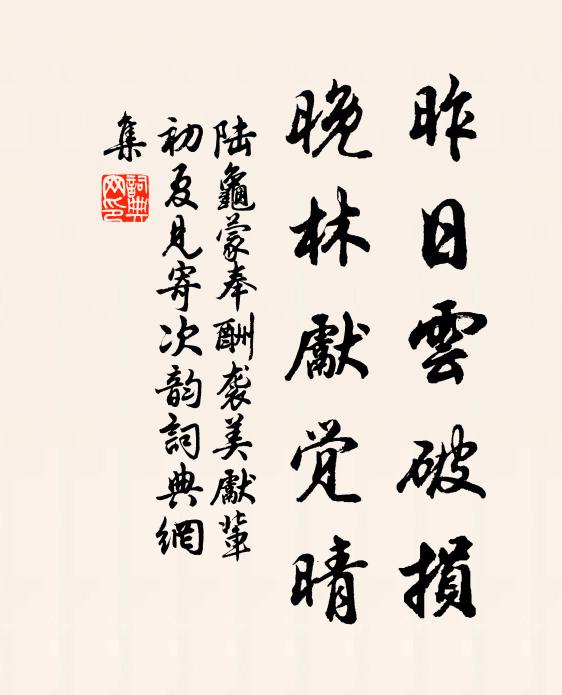 昨日雲破損
晚林獻覚晴
陸龜蒙奉酬袭美獻輩
初夏見寄次韵詞典網
集
詞典网印